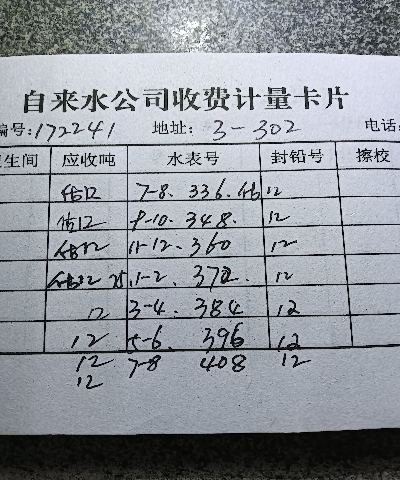 自来水公司收费计量卡片
编号:172241 地址: 3-302 电话:
生间 应收吨 水表号 封铅号 擦校
估12 7-8. 336. 估 12
估12 9-10. 348. 12
估12 11-12. 360 12
估12 25.1-2. 372 12
12 3-4. 384 12
12 5-6. 396 12
12 7-8 408 12
12